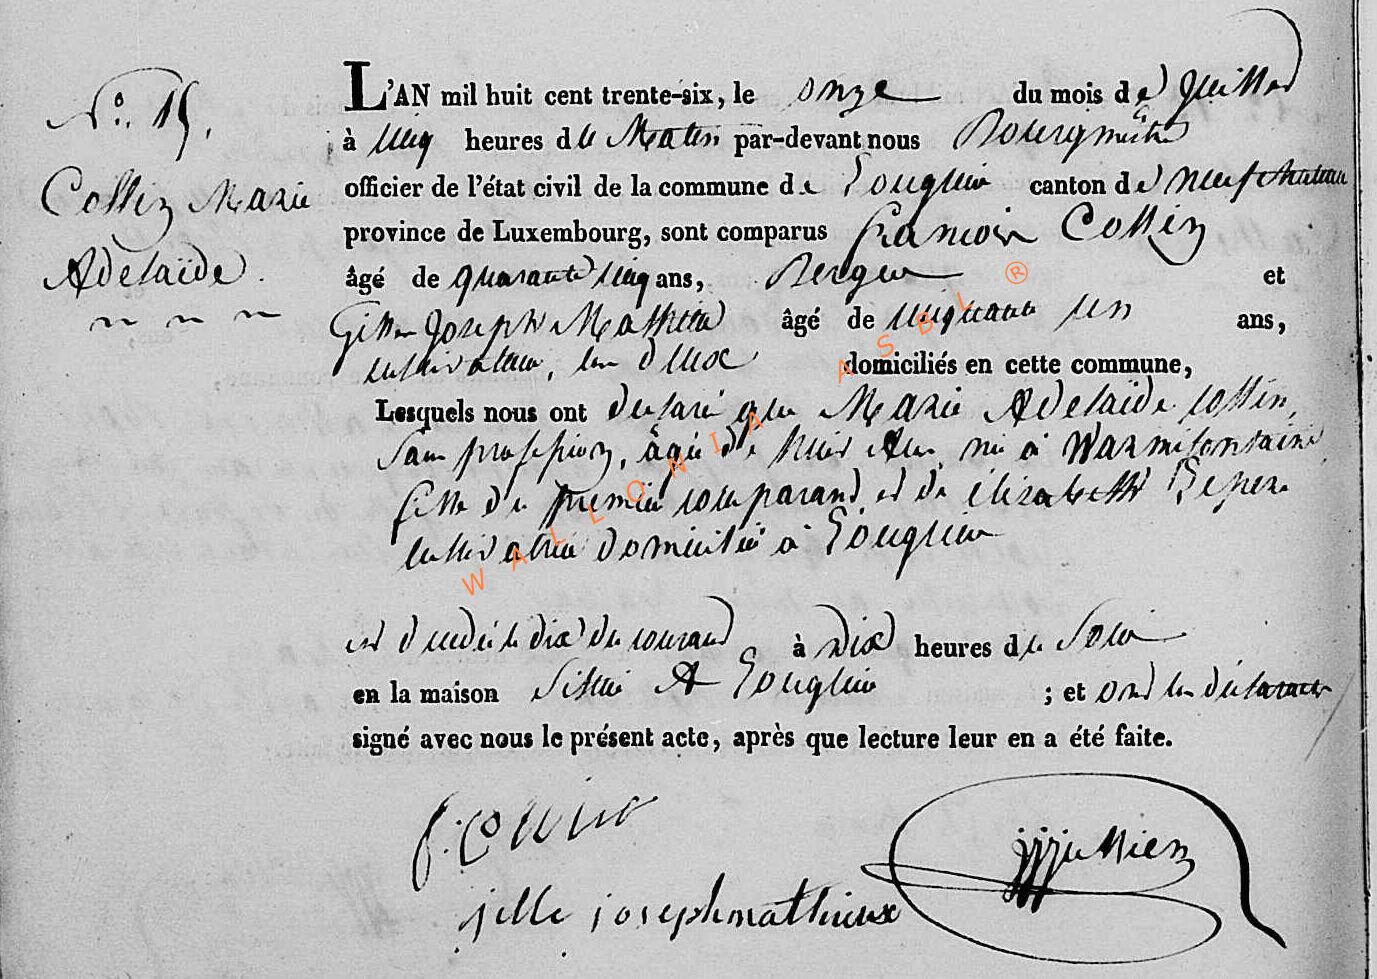 N.º 15.
Collin Marie
Adelaïde.
L'AN mil huit cent trente-six, le onze du mois de Juillet
à cinq heures du Matin par-devant nous Bourgmètre
officier de l'état civil de la commune de Longlier canton de neufchateau
province de Luxembourg, sont comparus francois Collin
âgé de quarante cinq ans, Berger et
Gille Joseph Mathieu âgé de cinquante un ans,
cultivateur, les deux domiciliés en cette commune,
Lesquels nous ont declaré que Marie Adelaïde collin,
sans profession, âgée de huit Ans née à Warmifontaine
fille du premier comparand et de élizabeth
cultivatrice domiciliée à Longlier
est decedée le dix du courand à Dix heures du Soir
en la maison Située A Longlier ; et ont les déclarants
signé avec nous le présent acte, après que lecture leur en a été faite.
f. Collin
jjjullien
jille joseph mathieux
WALLONIA ASBL ®